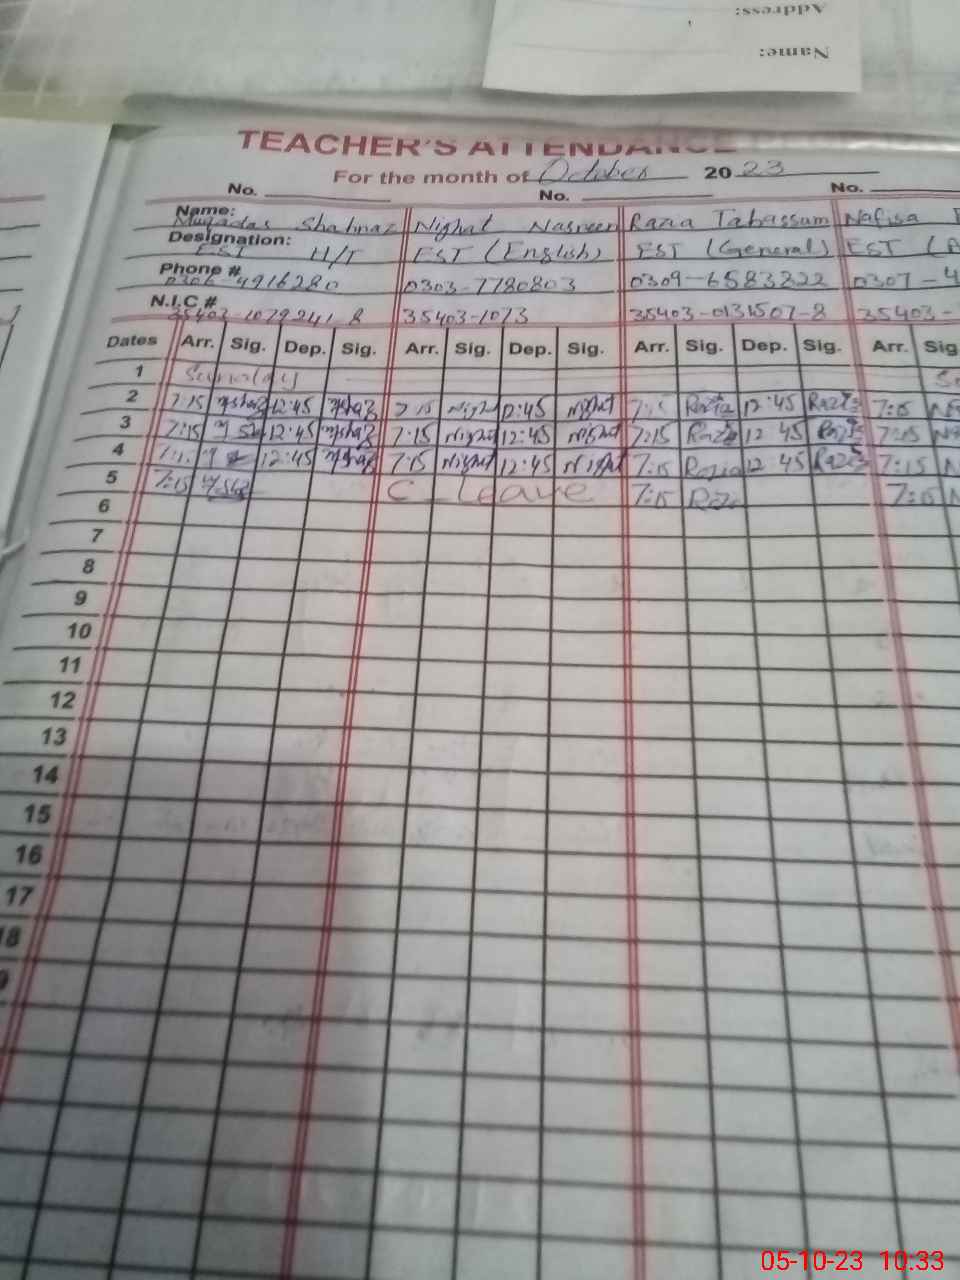 Address:
Name:
TEACHER'S ATTENDANCE
For the month of October 2023
No. No. No.
Name: Muqadas Shahnaz Nighat Nasreen Razia Tabassum Nafisa
Designation: EST H/T EST (English) EST (General) EST
Phone # 0306-4916280 0303-7780803 0309-6583222 0307-4
N.I.C # 35403-1079241-8 35403-1073 35403-0131507-8 35403-
Dates Arr. Sig. Dep. Sig. Arr. Sig. Dep. Sig. Arr. Sig. Dep. Sig. Arr. Sig
1 Sunday
2 7:15 12:45 7:15 Nighat 12:45 Nighat 7:15 Razia 12:45 Razia 7:15
3 7:15 12:45 7:15 Nighat 12:45 Nighat 7:15 Razia 12:45 Razia 7:15
4 12:45 7:15 Nighat 12:45 Nighat 7:15 Razia 12:45 Razia 7:15
5 7:15 C-Leave 7:15 Razia 7:15
6
7
8
9
10
11
12
13
14
15
16
17
18
9
05-10-23 10:33